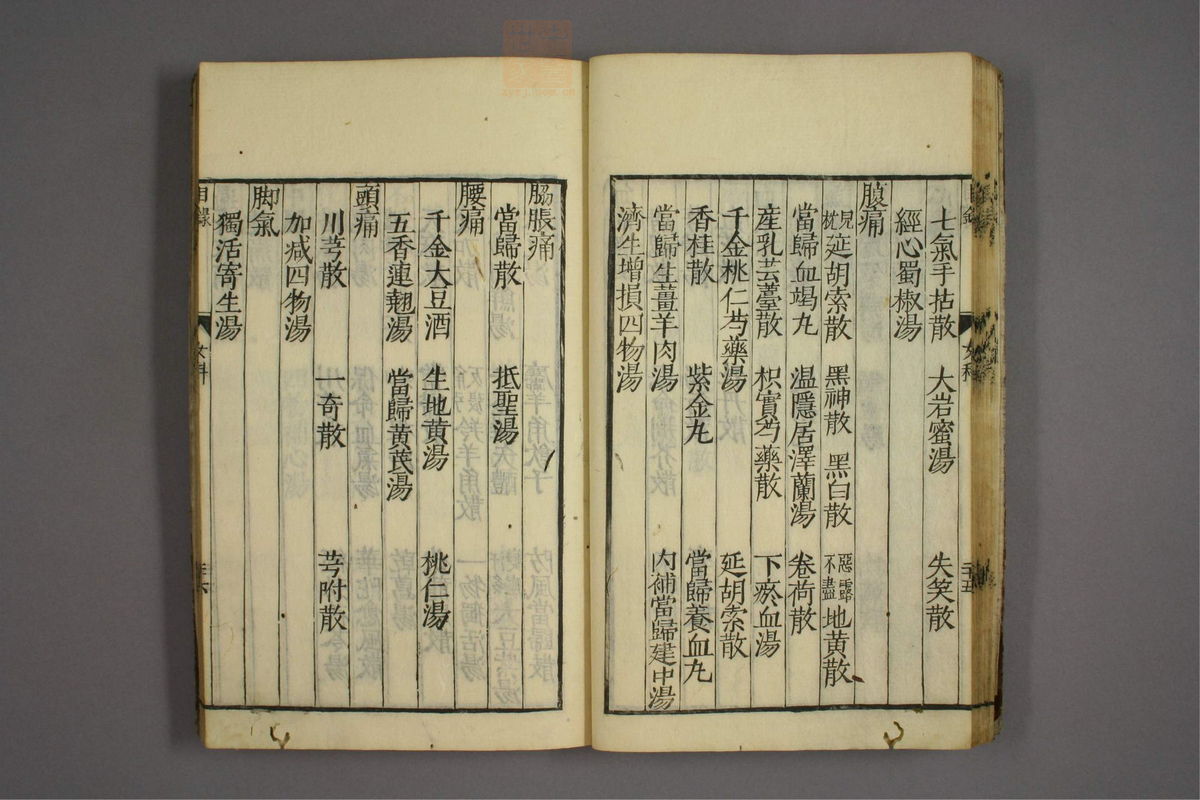 七氣手拈散 大岩蜜湯 失笑散
經心蜀椒湯
腹痛
兒枕 延胡索散 黑神散 黑白散 惡露不盡 地黄散
當歸血竭丸 溫隱居澤蘭湯 卷荷散
産乳芸薹散 枳實芍藥散 下瘀血湯
千金桃仁芍藥湯 延胡索散
香桂散 紫金丸 當歸養血丸
當歸生薑羊肉湯 内補當歸建中湯
濟生增損四物湯
脇脹痛
當歸散 抵聖湯
腰痛
千金大豆酒 生地黄湯 桃仁湯
五香連翹湯 當歸黄茋湯
頭痛
川芎散 一奇散 芎附散
加减四物湯
脚氣
獨活寄生湯
目錄 女科